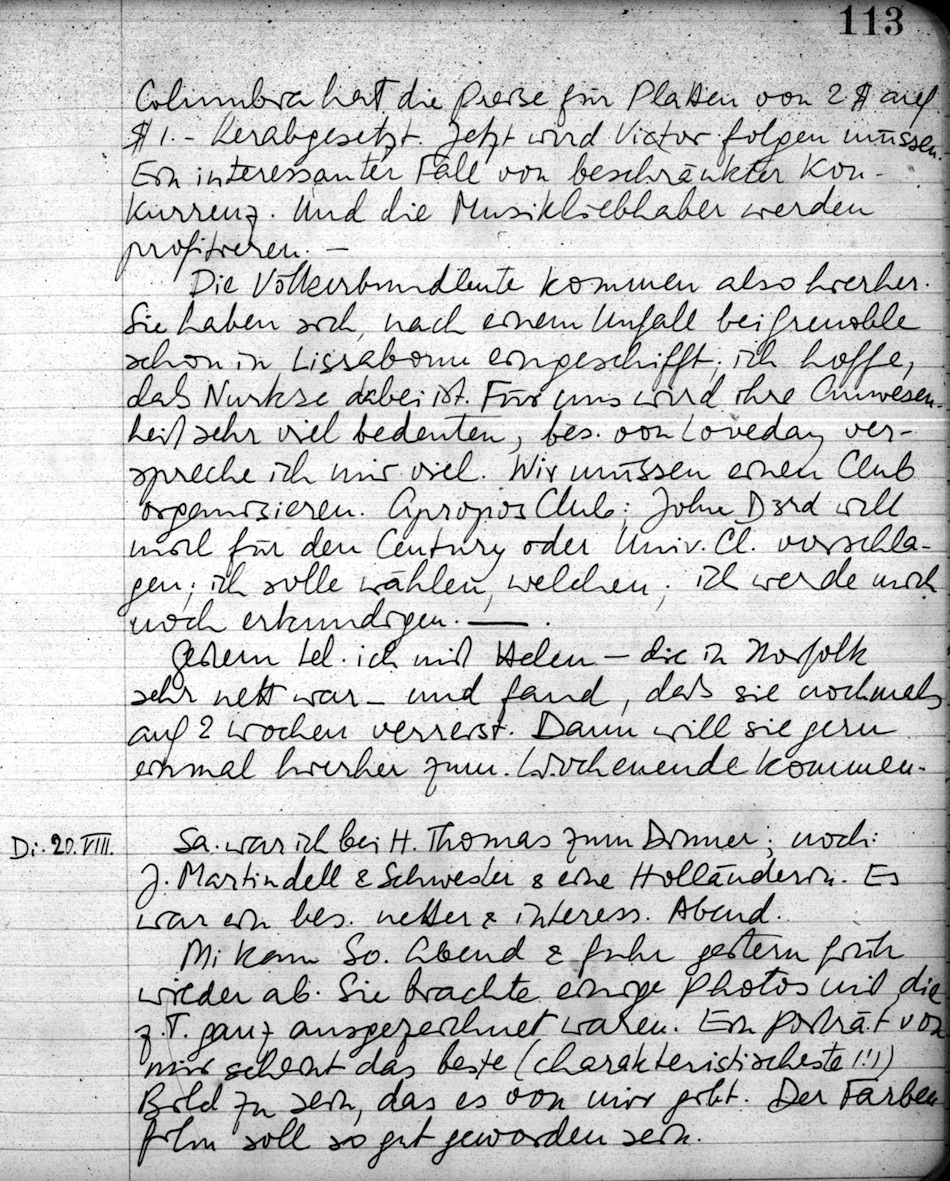 113
Columbia hat die Preise für Platten von 2 $ auf
$ 1.- herabgesetzt. Jetzt wird Victor folgen müssen.
Ein interessanter Fall von beschränkter Kon-
kurrenz. Und die Musikliebhaber werden
profitieren. —
Die Völkerbundleute kommen also hierher.
Sie haben sich, nach einem Unfall bei Grenoble
schon in Lissabonn eingeschifft; ich hoffe,
dass Nurkse dabei ist. Für uns wird ihre Anwesen-
heit sehr viel bedeuten, bes. von Loveday ver-
spreche ich mir viel. Wir müssen einen Club
organisieren. Apropos Club: John D3rd will
mich für den Century oder Univ. Cl. vorschla-
gen; ich solle wählen, welchen; ich werde mich
noch erkundigen. — .
Gestern tel. ich mit Helen – die in Norfolk
sehr nett war – und fand, dass sie nochmals
auf 2 Wochen verreist. Dann will sie gern
einmal hierher zum Wochenende kommen.
Di. 20. VIII. Sa. war ich bei H. Thomas zum Dinner; noch:
J. Martindell & Schwester & eine Holländerin. Es
war ein bes. netter & interess. Abend.
Mi kam So. Abend & fuhr gestern früh
wieder ab. Sie brachte einige Photos mit, die
z.T. ganz ausgezeichnet waren. Ein Porträt von
mir scheint das beste (charakteristischeste !!!)
Bild zu sein, das es von mir gibt. Der Farben
film soll so gut geworden sein.